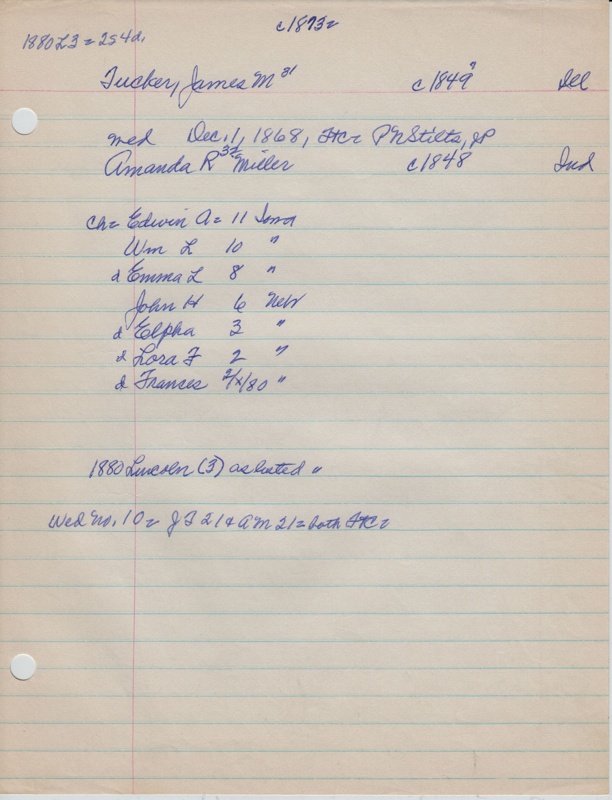 c1873=
1880 L3 = 2s 4d.
Tucker, James M 31 c1849" Del
med Dec. 1, 1868, HC= P N Stilts, JP
Amanda R 32 Miller c1848 Ind
Ch= Edwin A = 11 Iowa
Wm L 10 "
d Emma L 8 "
John H 6 Neb
d Elpha 3 "
d Lora F 2 "
d Frances 2/x/80 "
1880 Lincoln (3) as listed "
Wed No. 10 = J F 21 & A M 21 = both HC=